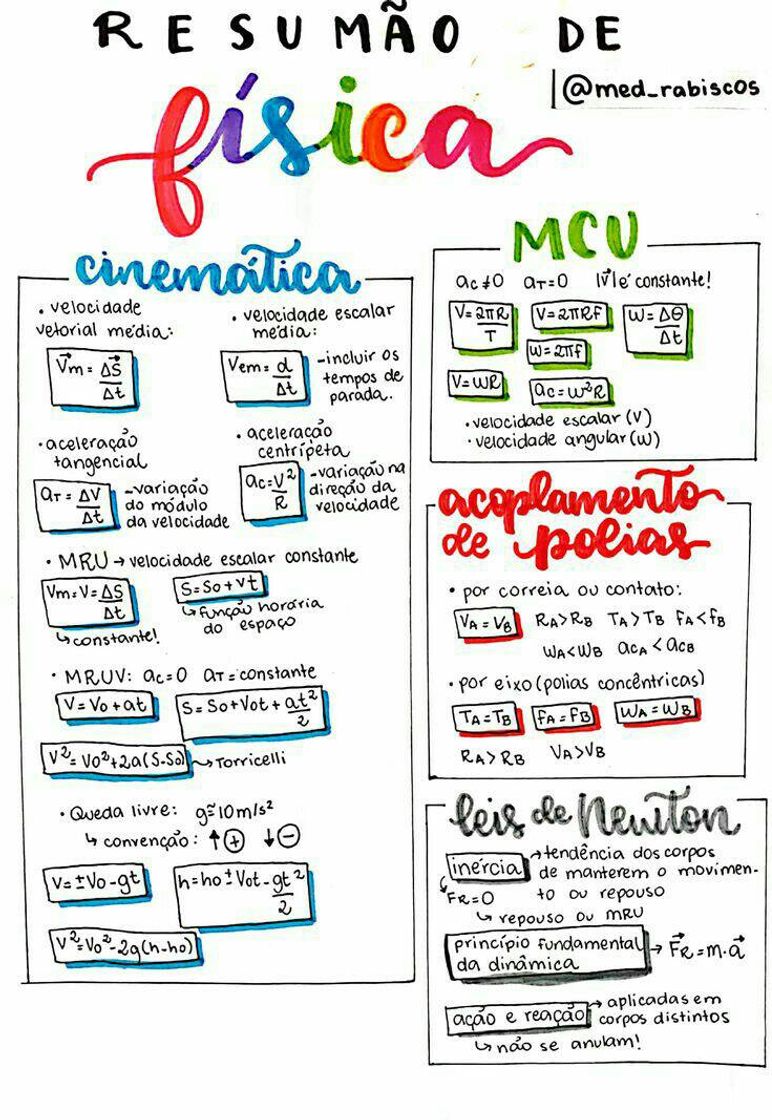 RESUMÃO DE
@med_rabiscos
física
cinemática
• velocidade
vetorial média:
V⃗m = ΔS⃗/Δt
• velocidade escalar
média:
Vem = d/Δt
-incluir os
tempos de
parada.
• aceleração
tangencial
aT = ΔV/Δt
-variação
do módulo
da velocidade
• aceleração
centrípeta
ac = V²/R
-variação na
direção da
velocidade
• MRU → velocidade escalar constante
Vm = V = ΔS/Δt
↳ constante!
S = So + Vt
↳ função horária
do espaço
• MRUV: ac = 0 aT = constante
V = Vo + at
S = So + Vot + at²/2
V² = Vo² + 2a(S-So) → Torricelli
• Queda livre: g ≃ 10 m/s²
↳ convenção: ↑⊕ ↓⊖
V = ± Vo - gt
h = ho ± Vot - gt²/2
V² = Vo² - 2g(h-ho)
MCU
ac ≠ 0 aT = 0 |V⃗| é constante!
V = 2πR/T
V = 2πRf
W = Δθ/Δt
W = 2πf
V = WR
ac = W²R
• velocidade escalar (V)
• velocidade angular (W)
acoplamento
de polias
• por correia ou contato:
VA = VB RA > RB TA > TB fA < fB
WA < WB acA < acB
• por eixo (polias concêntricas)
TA = TB fA = fB WA = WB
RA > RB VA > VB
leis de Newton
inércia → tendência dos corpos
de manterem o movimen-
to ou repouso
FR = 0
↳ repouso ou MRU
princípio fundamental
da dinâmica
→ F⃗R = m.a⃗
ação e reação → aplicadas em
corpos distintos
↳ não se anulam!